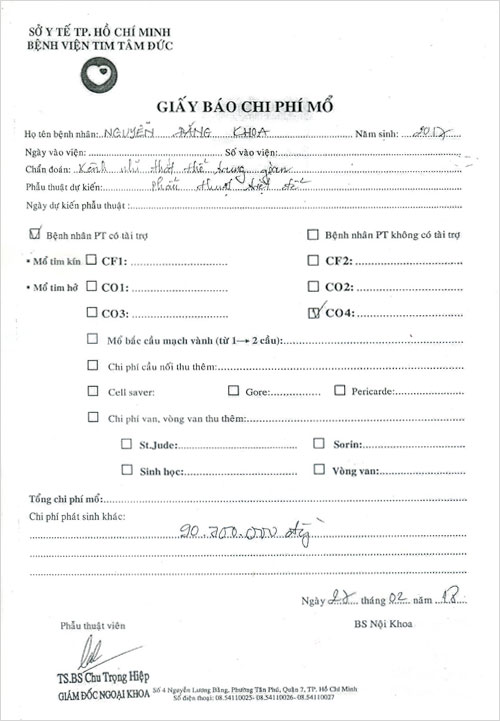 SỞ Y TẾ TP. HỒ CHÍ MINH
BỆNH VIỆN TIM TÂM ĐỨC
GIẤY BÁO CHI PHÍ MỔ
Họ tên bệnh nhân: NGUYỄN ĐĂNG KHOA Năm sinh: 2017
Ngày vào viện: Số vào viện:
Chẩn đoán: Kênh nhĩ thất thể trung gian
Phẫu thuật dự kiến: Phẫu thuật triệt để
Ngày dự kiến phẫu thuật :
Bệnh nhân PT có tài trợ Bệnh nhân PT không có tài trợ
• Mổ tim kín CF1: CF2:
• Mổ tim hở CO1: CO2:
CO3: CO4:
Mổ bắc cầu mạch vành (từ 1→ 2 cầu):
Chi phí cầu nối thu thêm:
Cell saver: Gore: Pericarde:
Chi phí van, vòng van thu thêm:
St.Jude: Sorin:
Sinh học: Vòng van:
Tổng chi phí mổ:
Chi phí phát sinh khác:
90.700.000 đồng
Ngày 27 tháng 02 năm 18
Phẫu thuật viên BS Nội Khoa
TS.BS Chu Trọng Hiệp
GIÁM ĐỐC NGOẠI KHOA
Số 4 Nguyễn Lương Bằng, Phường Tân Phú, Quận 7, TP. Hồ Chí Minh
Số điện thoại: 08.54110025 - 08.54110026 - 08.54110027